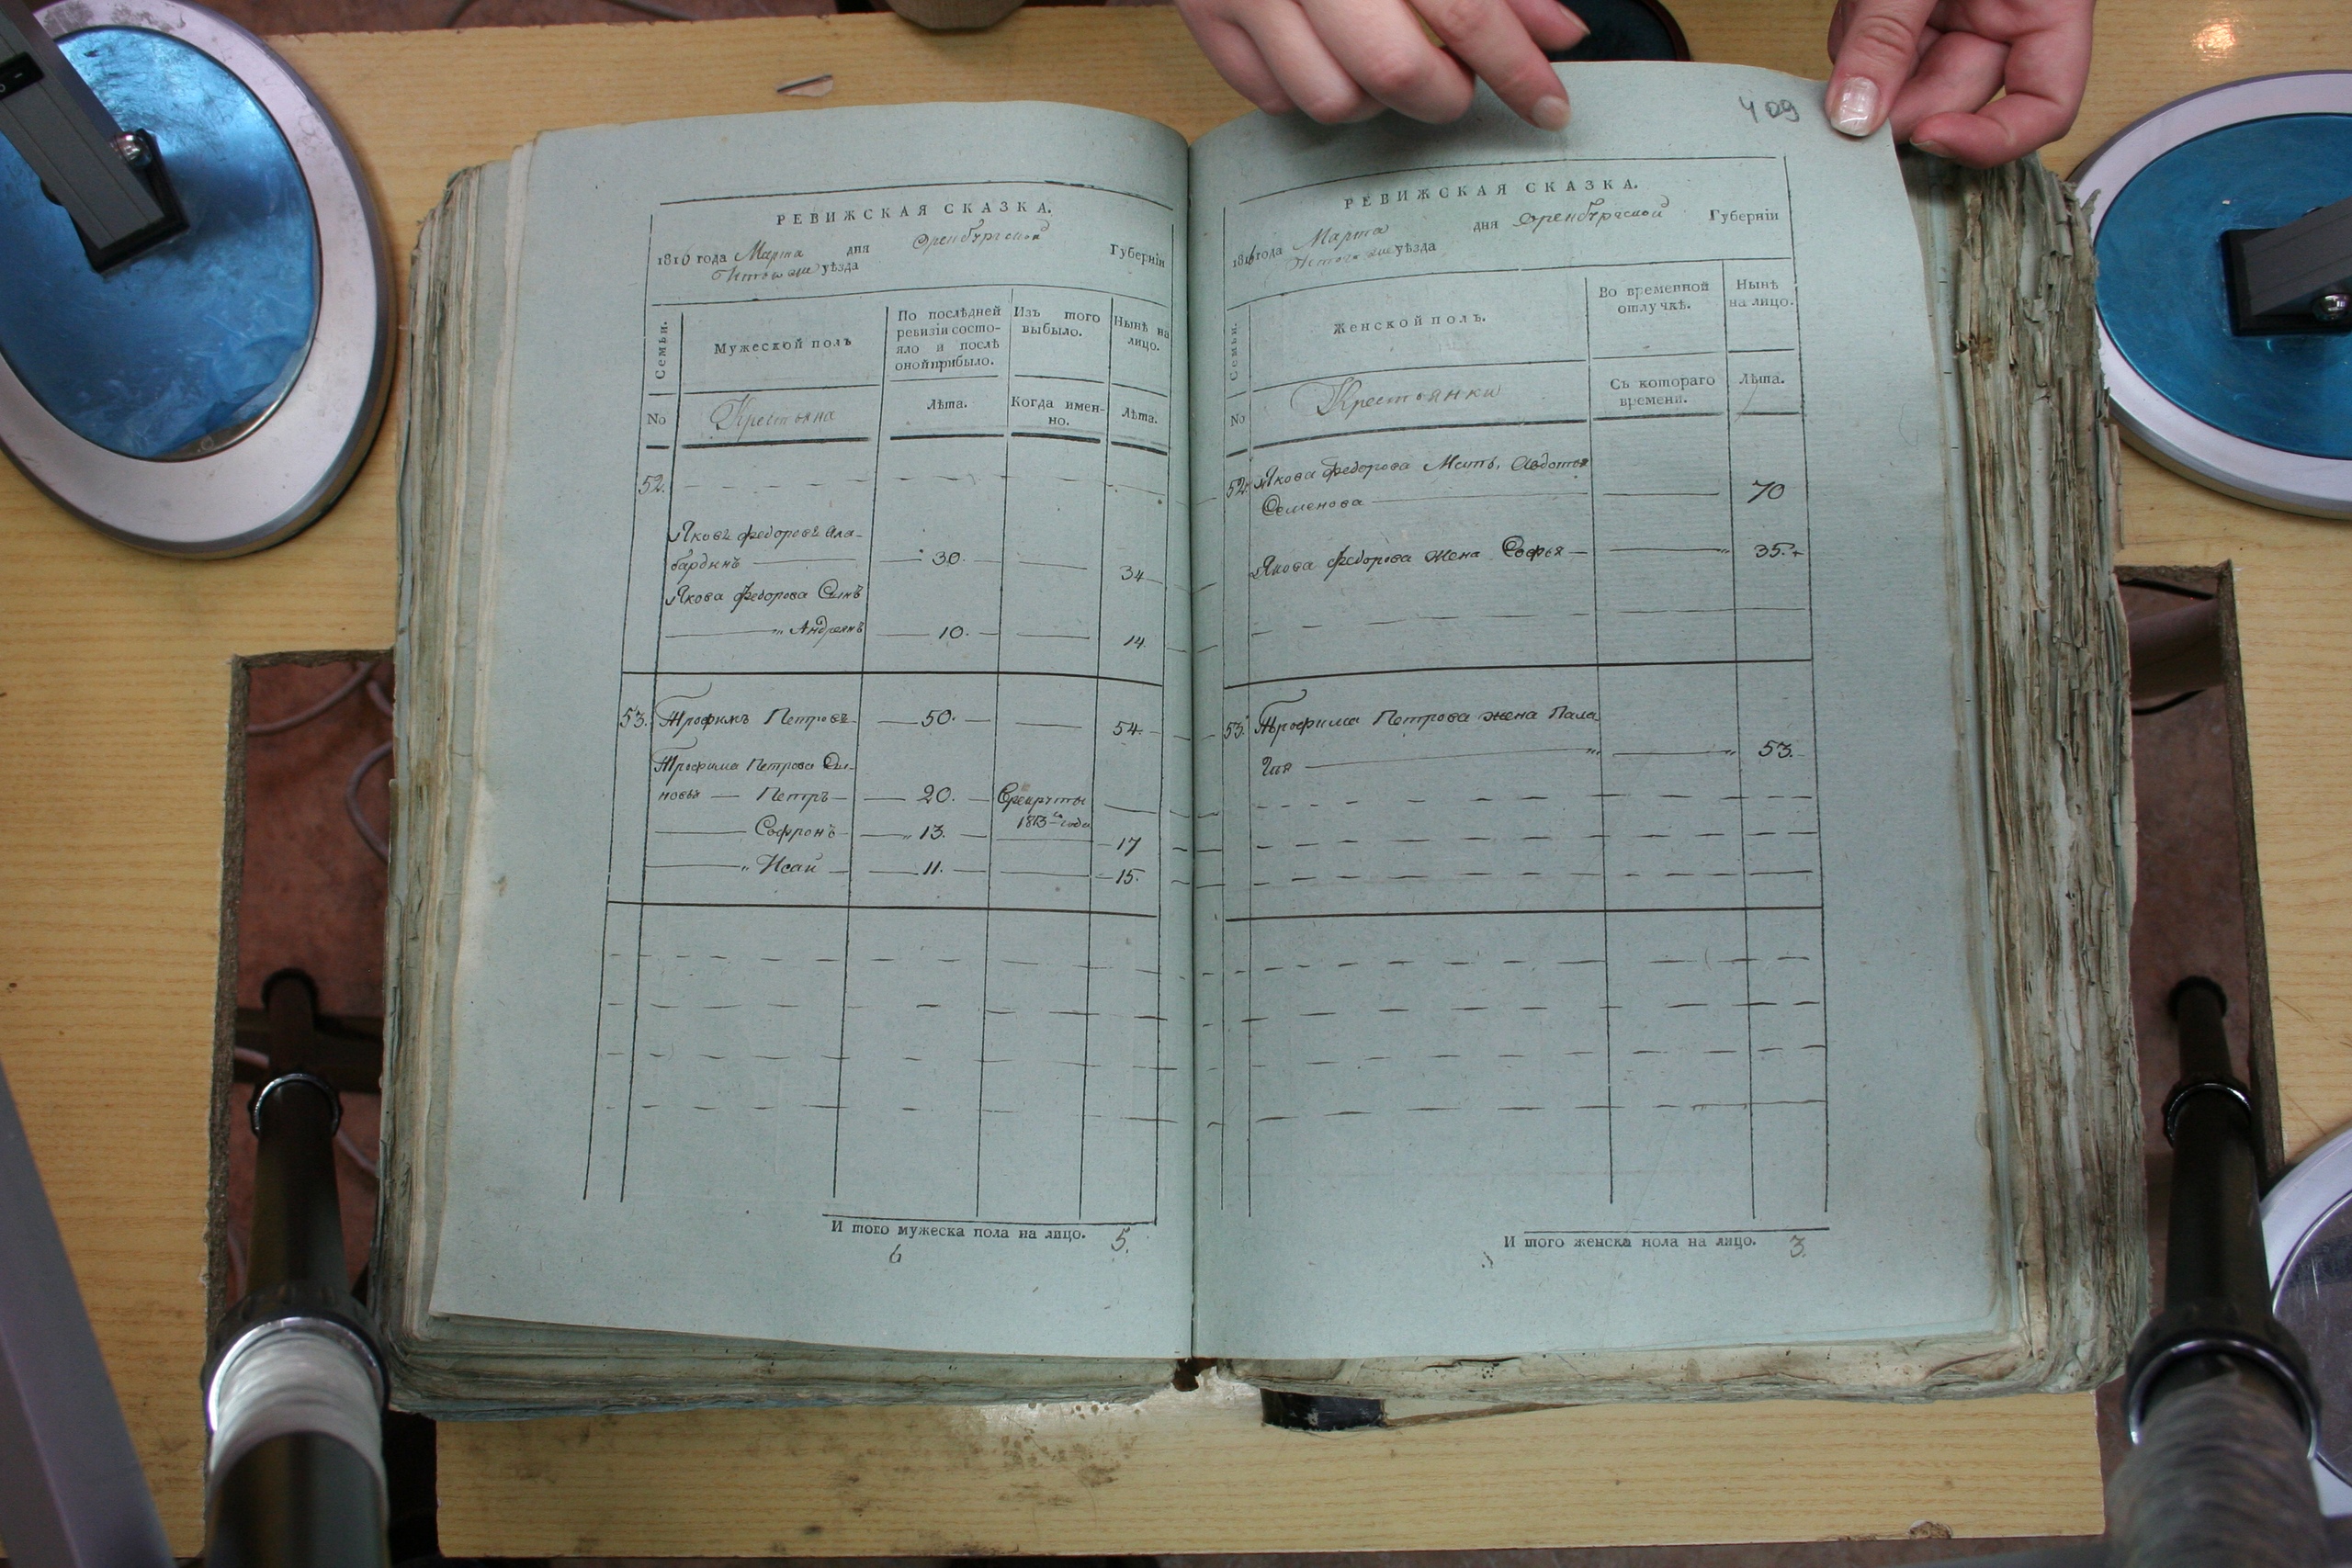 409
РЕВИЖСКАЯ СКАЗКА.
1816 года Марта дня Оренбургской Губернїи
уѣзда
Семьи. Мужеской полъ
По послѣдней ревизїи состо-
яло и послѣ
оной прибыло.
Изъ того
выбыло.
Нынѣ на
лицо.
No Крестьяна Лѣта. Когда имен-
но. Лѣта.
52.
Яковъ Федоровъ Ала-
бардинъ 30. 34
Якова Федорова Сынъ
Андреянъ 10. 14
53. Трофимъ Петровъ 50. 54
Трофима Петрова Сы-
новья Петръ 20. Врекруты
1813го года
Софронъ 13. 17
Исай 11. 15.
И того мужеска пола на лицо. 5.
6
РЕВИЖСКАЯ СКАЗКА.
1816 года Марта дня Оренбургской Губернїи
уѣзда
Семьи. Женской полъ.
Во временной
отлучкѣ.
Нынѣ
на лицо.
No Крестьянки Съ котораго
времени. Лѣта.
52. Якова Федорова Мать, Авдотья
Семенова 70
Якова Федорова жена Софья 35.
53. Трофима Петрова жена Пала
гия 53.
И того женска пола на лицо. 3.